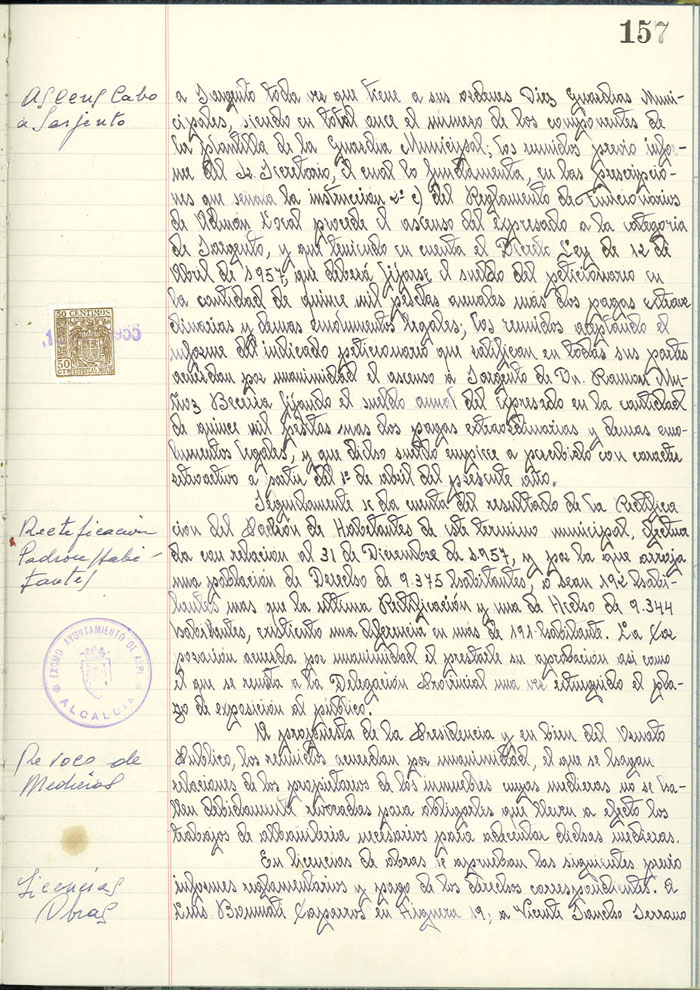 157
Ascens Cabo
a Sarjento
a Sargento toda vez que tiene a sus ordenes Diez Guardias Muni-
cipales, siendo en total once el número de los componentes de
la plantilla de la Guardia Municipal; los reunidos previo infor-
me del Sr. Secretario, el cual lo fundamenta, en las prescripcio-
nes que señala la instrucion 2ª c) del Reglamento de Funcionarios
de Admón Local procede el ascenso del expresado a la categoria
de Sargento, y que teniendo en cuenta el Decreto Ley de 12 de
Abril de 1957, que deberá fijarse el sueldo del peticionario en
la cantidad de quince mil pesetas anuales mas dos pagas extraor
dinarias y demas emolumentos legales; los reunidos aceptando el
informe del indicado peticionario que ratifican en todas sus partes
acuerdan por unanimidad el ascenso a Sargento de Dn. Ramon Mu-
ñoz Becerra fijando el sueldo anual del expresado en la cantidad
de quince mil pesetas mas dos pagas extraordinarias y demas emo-
lumentos legales, y que dicho sueldo empiece a percibirlo con caracter
retroactivo a partir del 1º de abril del presente año.
50 CENTIMOS
50
Rectificacion
Padron Habi-
tantes
Seguidamente se da cuenta del resultado de la Rectifica
cion del Padrón de Habitantes de este termino municipal, efectua
da con relacion al 31 de Diciembre de 1957, y por la que arroja
una poblacion de Derecho de 9.375 habitantes, o sean 192 habi-
tantes mas que la última Rectificación y una de Hecho de 9.344
habitantes, existiendo una diferencia en más de 191 habitante. La Cor
poración acuerda por unanimidad el prestarle su aprobacion asi como
el que se remita a la Delegación Provincial una vez extinguido el pla-
zo de exposición al público.
EXCMO AYUNTAMIENTO DE ASPE
ALCALDIA
Revoco de
Medieras
A propuesta de la Presidencia y en bien del Ornato
Publico, los reunidos acuerdan por unanimidad, el que se hagan
relaciones de los propietarios de los inmuebles cuyas medieras no se ha-
llen debidamente revocadas para obligarles que lleven a efecto los
trabajos de albañileria necesarios para adecentar dichas medieras.
Licencias
Obras
En licencias de obras se aprueban las siguientes previo
informes reglamentarios y pago de los derechos correspondientes. A
Luis Bonmati Caparros en Higuera 19; a Vicente Sancho Serrano